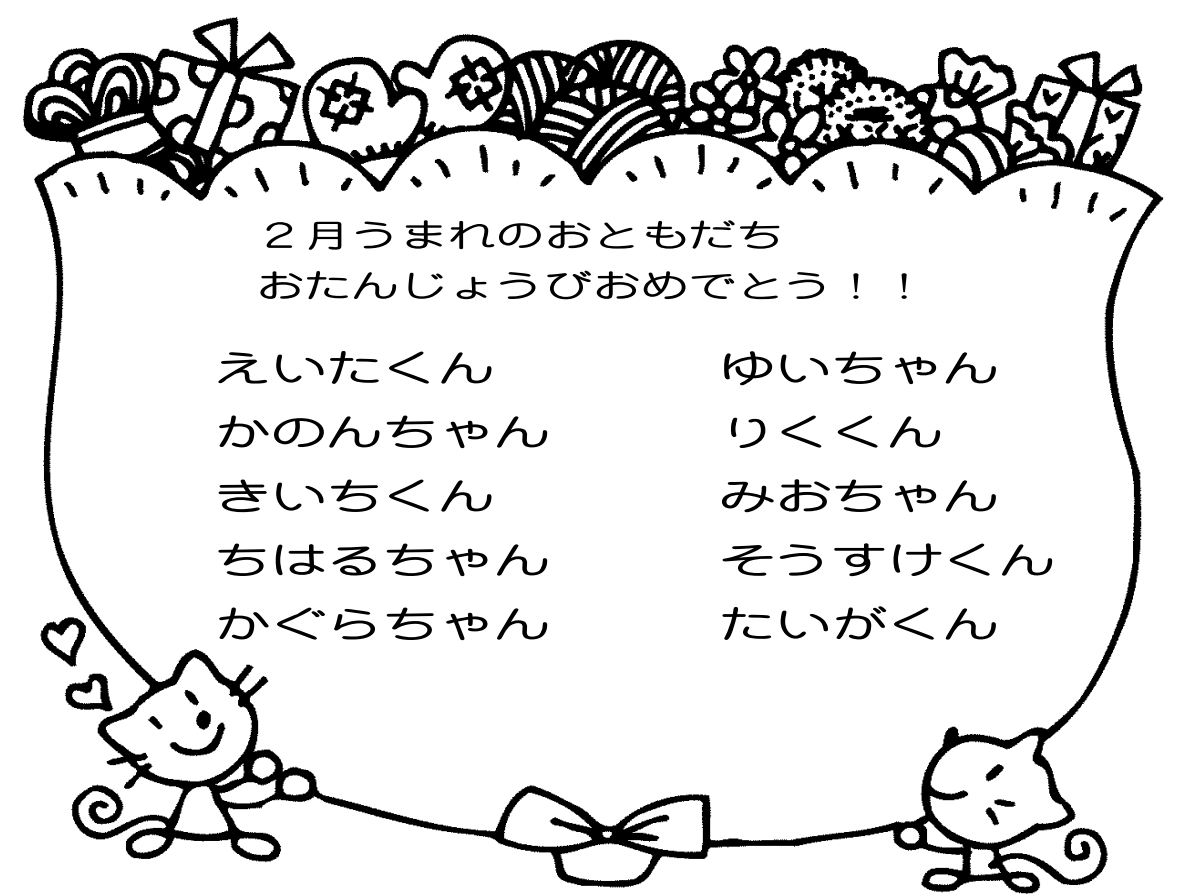 ２月うまれのおともだち
おたんじょうびおめでとう！！
えいたくん
かのんちゃん
きいちくん
ちはるちゃん
かぐらちゃん
ゆいちゃん
りくくん
みおちゃん
そうすけくん
たいがくん